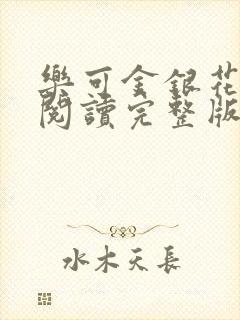 樂可金銀花
閱讀完整版
水木天長